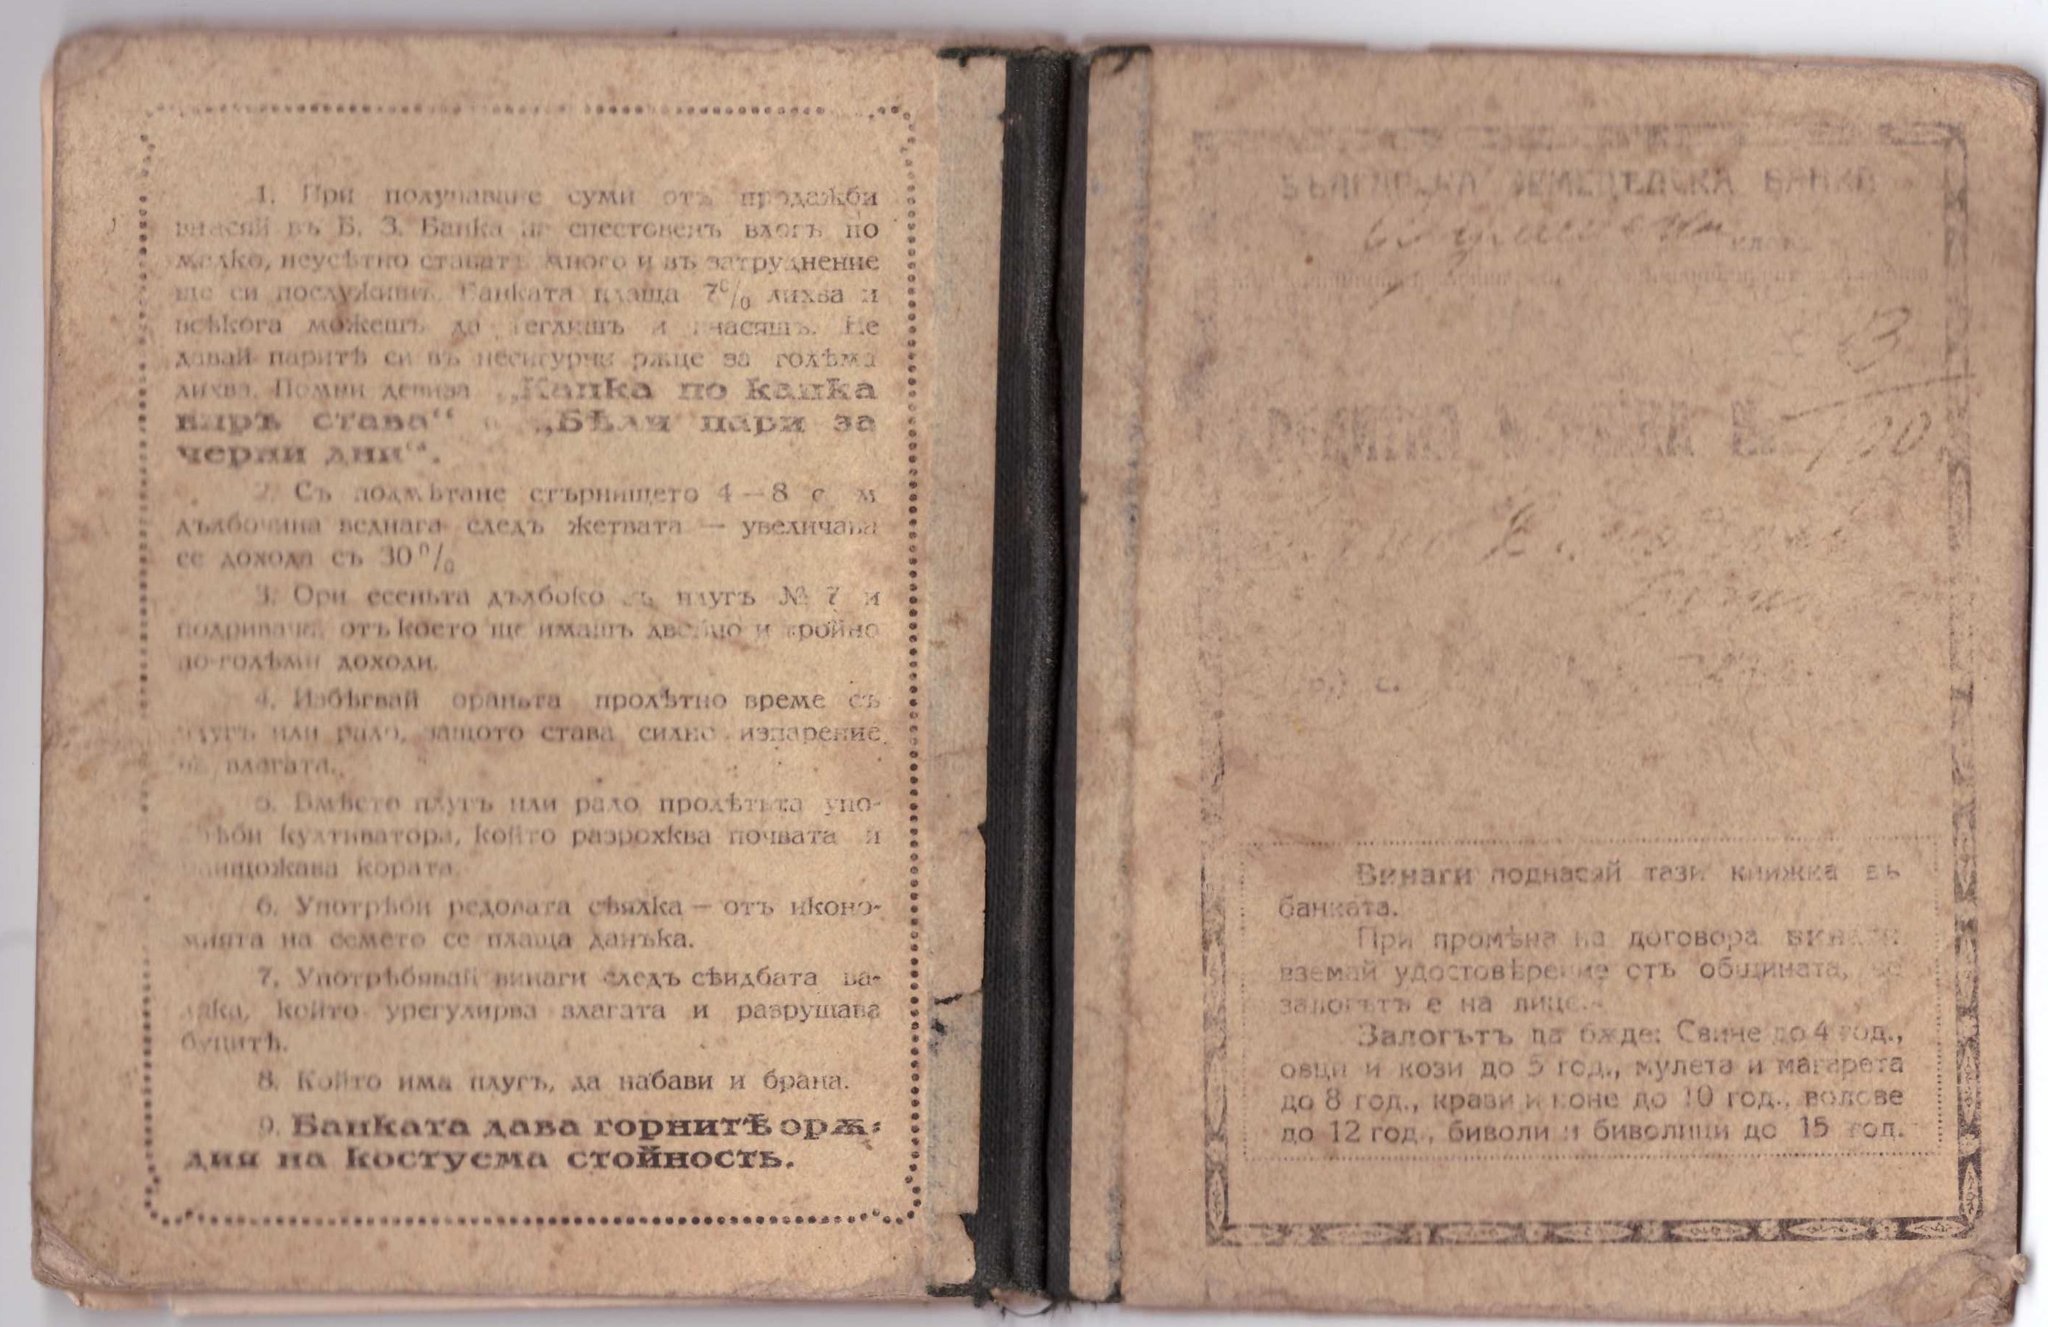 1. При получаване суми отъ продажби
внасяй въ Б. З. Банка на спестовенъ влогъ по
малко, неусѣтно ставатъ много и въ затруднение
ще си послужишъ. Банката плаща 7% лихва и
всѣкога можешъ да теглишъ и внасяшъ. Не
давай паритѣ си въ несигурни рѫце за голѣма
лихва. Помни девиза „Капка по капка
виръ става“ и „Бѣли пари за
черни дни“.
2. Съ подмѣтане стърнището 4—8 с. м
дълбочина веднага следъ жетвата — увеличава
се дохода съ 30%
3. Ори есеньта дълбоко съ плугъ № 7 и
подривача, отъ което ще имашъ двойно и тройно
по-голѣми доходи.
4. Избѣгвай ораньта пролѣтно време съ
плугъ или рало, защото става силно изпарение
на влагата.
5. Вмѣсто плугъ или рало пролѣтьта упо-
трѣби култиватора, който разрохква почвата и
унищожава кората.
6. Употрѣби редовата сѣялка — отъ иконо-
мията на семето се плаща данъка.
7. Употрѣбявай винаги следъ сѣидбата ва-
ляка, който урегулирва влагата и разрушава
буцитѣ.
8. Който има плугъ, да набави и брана.
9. Банката дава горнитѣ орѫ-
дия на костуема стойность.
БЪЛГАРСКА ЗЕМЕДѢЛСКА БАНКА
клонъ
3
100
Винаги поднасяй тази книжка въ
банката.
При промѣна на договора винаги
вземай удостовѣрение отъ общината, че
залогътъ е на лице.
Залогътъ да бѫде: Свине до 4 год.,
овци и кози до 5 год., мулета и магарета
до 8 год., крави и коне до 10 год., волове
до 12 год., биволи и биволици до 15 год.